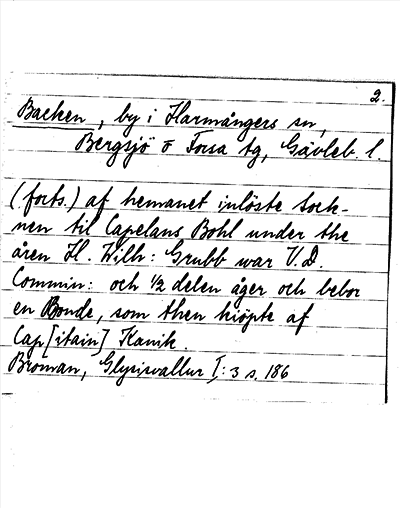 2.
Backen, by i Harmångers sn,
Bergsjö o Forsa tg, Gävleb. l.
(forts.) af hemanet inlöste Sock-
nen til Capelans Bohl under the
åren H. Wilh: Grubb war V.D.
Commin: och 1/2 delen åger och bebor
en Bonde, som then kiöpte af
Cap[itain] Kanik.
Broman, Glysisvallur I:3 s. 186